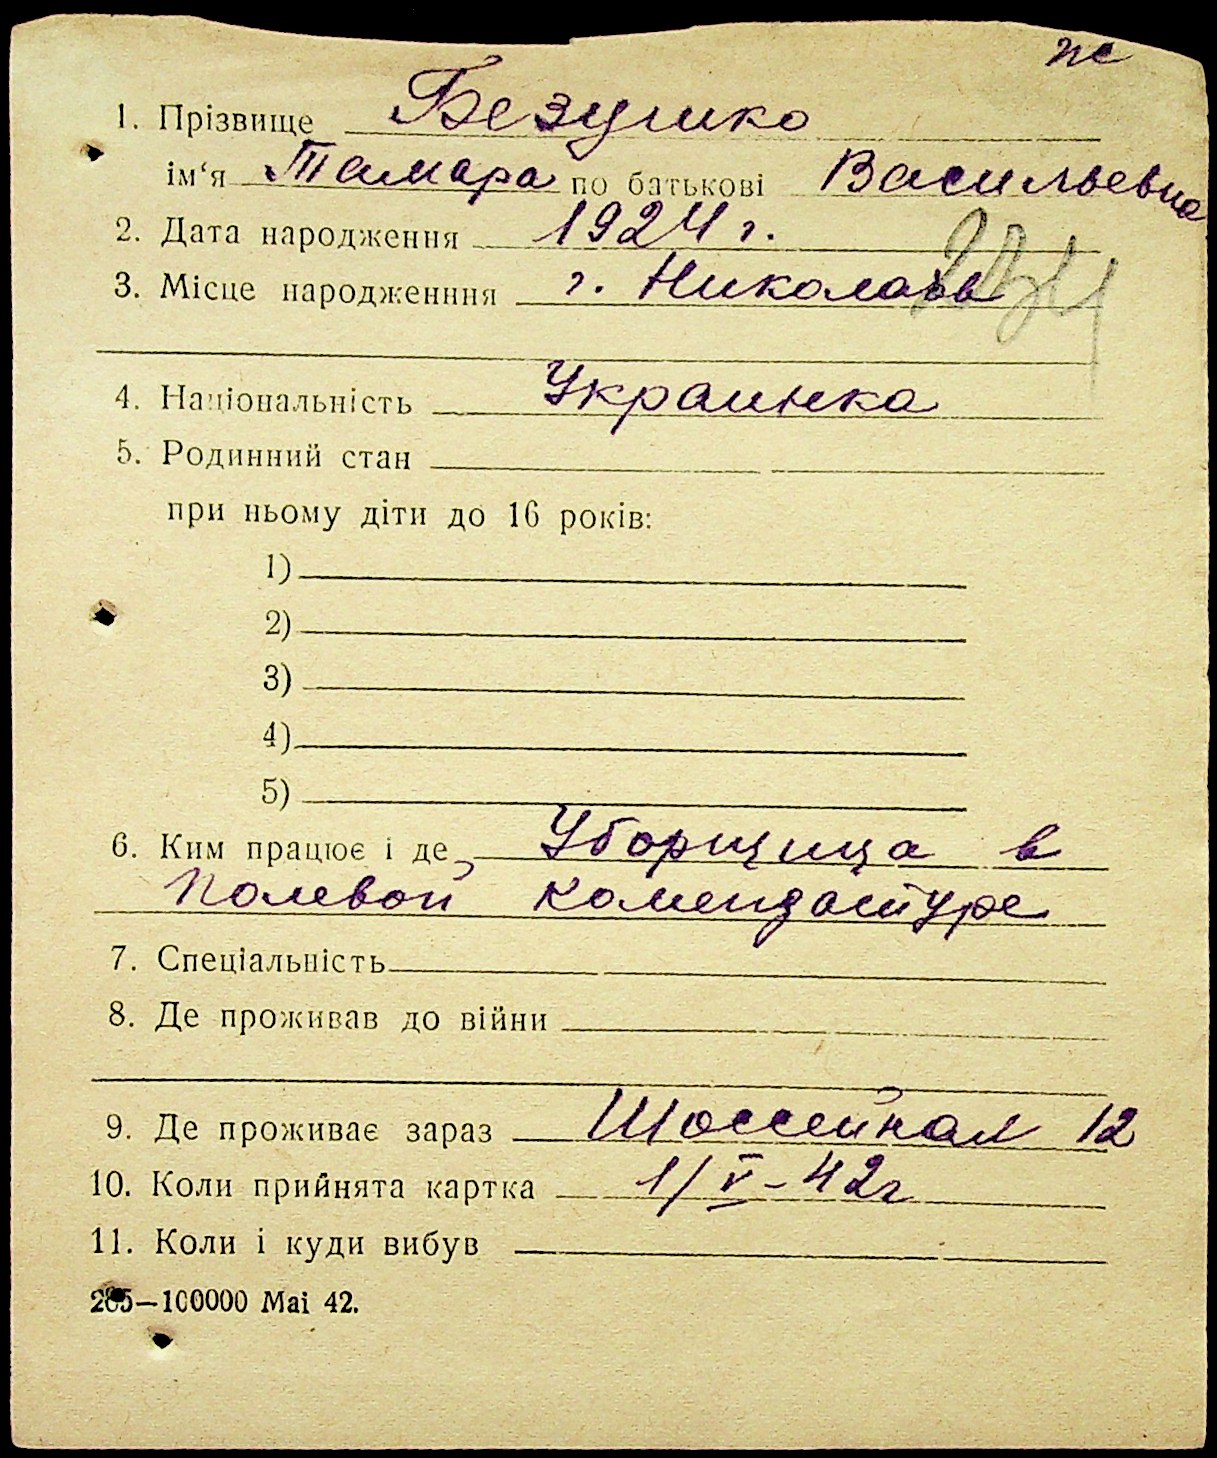 1. Прізвище Безушко
ім'я Тамара по батькові Васильевна
2. Дата народження 1924 г.
3. Місце народженння г. Николаев
4. Національність Украинка
5. Родинний стан
при ньому діти до 16 років:
1)
2)
3)
4)
5)
6. Ким працює і де Уборщица в
полевой комендатуре
7. Спеціальність
8. Де проживав до війни
9. Де проживає зараз Шоссейная 12
10. Коли прийнята картка 1/V-42г
11. Коли і куди вибув
285—100000 Mai 42.